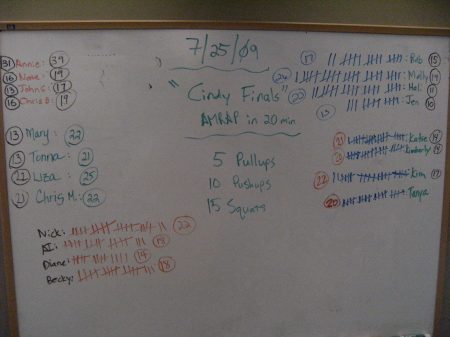 7/25/09
"Cindy Finals"
AMRAP in 20 min
5 Pullups
10 Pushups
15 Squats
31 Annie: 39
16 Nave: 19
13 John G: 17
16 Chris B: 19
13 Mary: 22
13 Tonna: 21
22 Liza: 25
21 Chris M: 22
Nick: 22
Al: 18
Diane: 14
Becky: 18
17 Rob 15
26 Molly 19
20 Hal: 11
13 Jen 10
21 Katie 18
20 Kimberly
22 Kim 17
20 Tanya